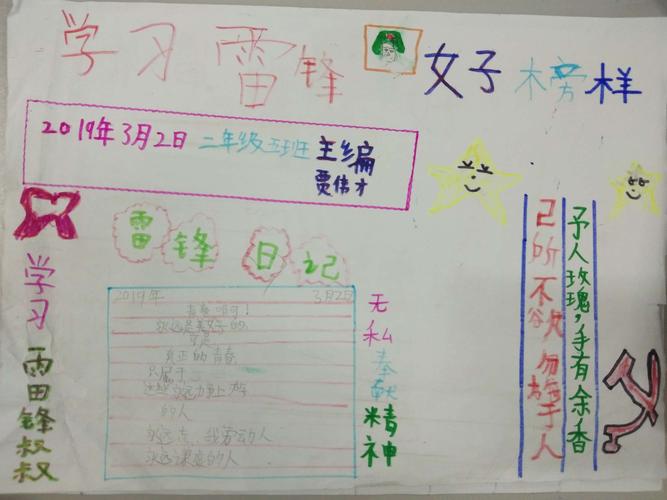 学习雷锋好榜样
2019年3月2日 二年级五班 主编
贾伟才
雷锋日记
2019年 3月2日
永远是美好的
真正的青春
只属于
这些永远力争上游
的人
永远忘我劳动人
永远谦虚的人
无私奉献精神
学习雷锋叔叔
己所不欲勿施于人
予人玫瑰,手有余香